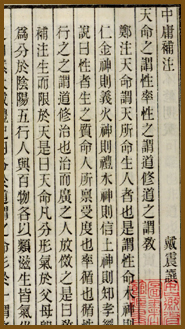 中庸補注
戴震譔
天命之謂性率性之謂道修道之謂教
鄭注天命謂天所命生人者也是謂性命木神則
仁金神則義火神則禮水神則信土神則知孝經
說曰性者生之質命人所禀受度也率循也循性
行之之謂道修治也治而廣之人放傚之是曰教
補注生而限於天是曰天命凡分形氣於父母即
為分於陰陽五行人與百物各以類滋生皆氣